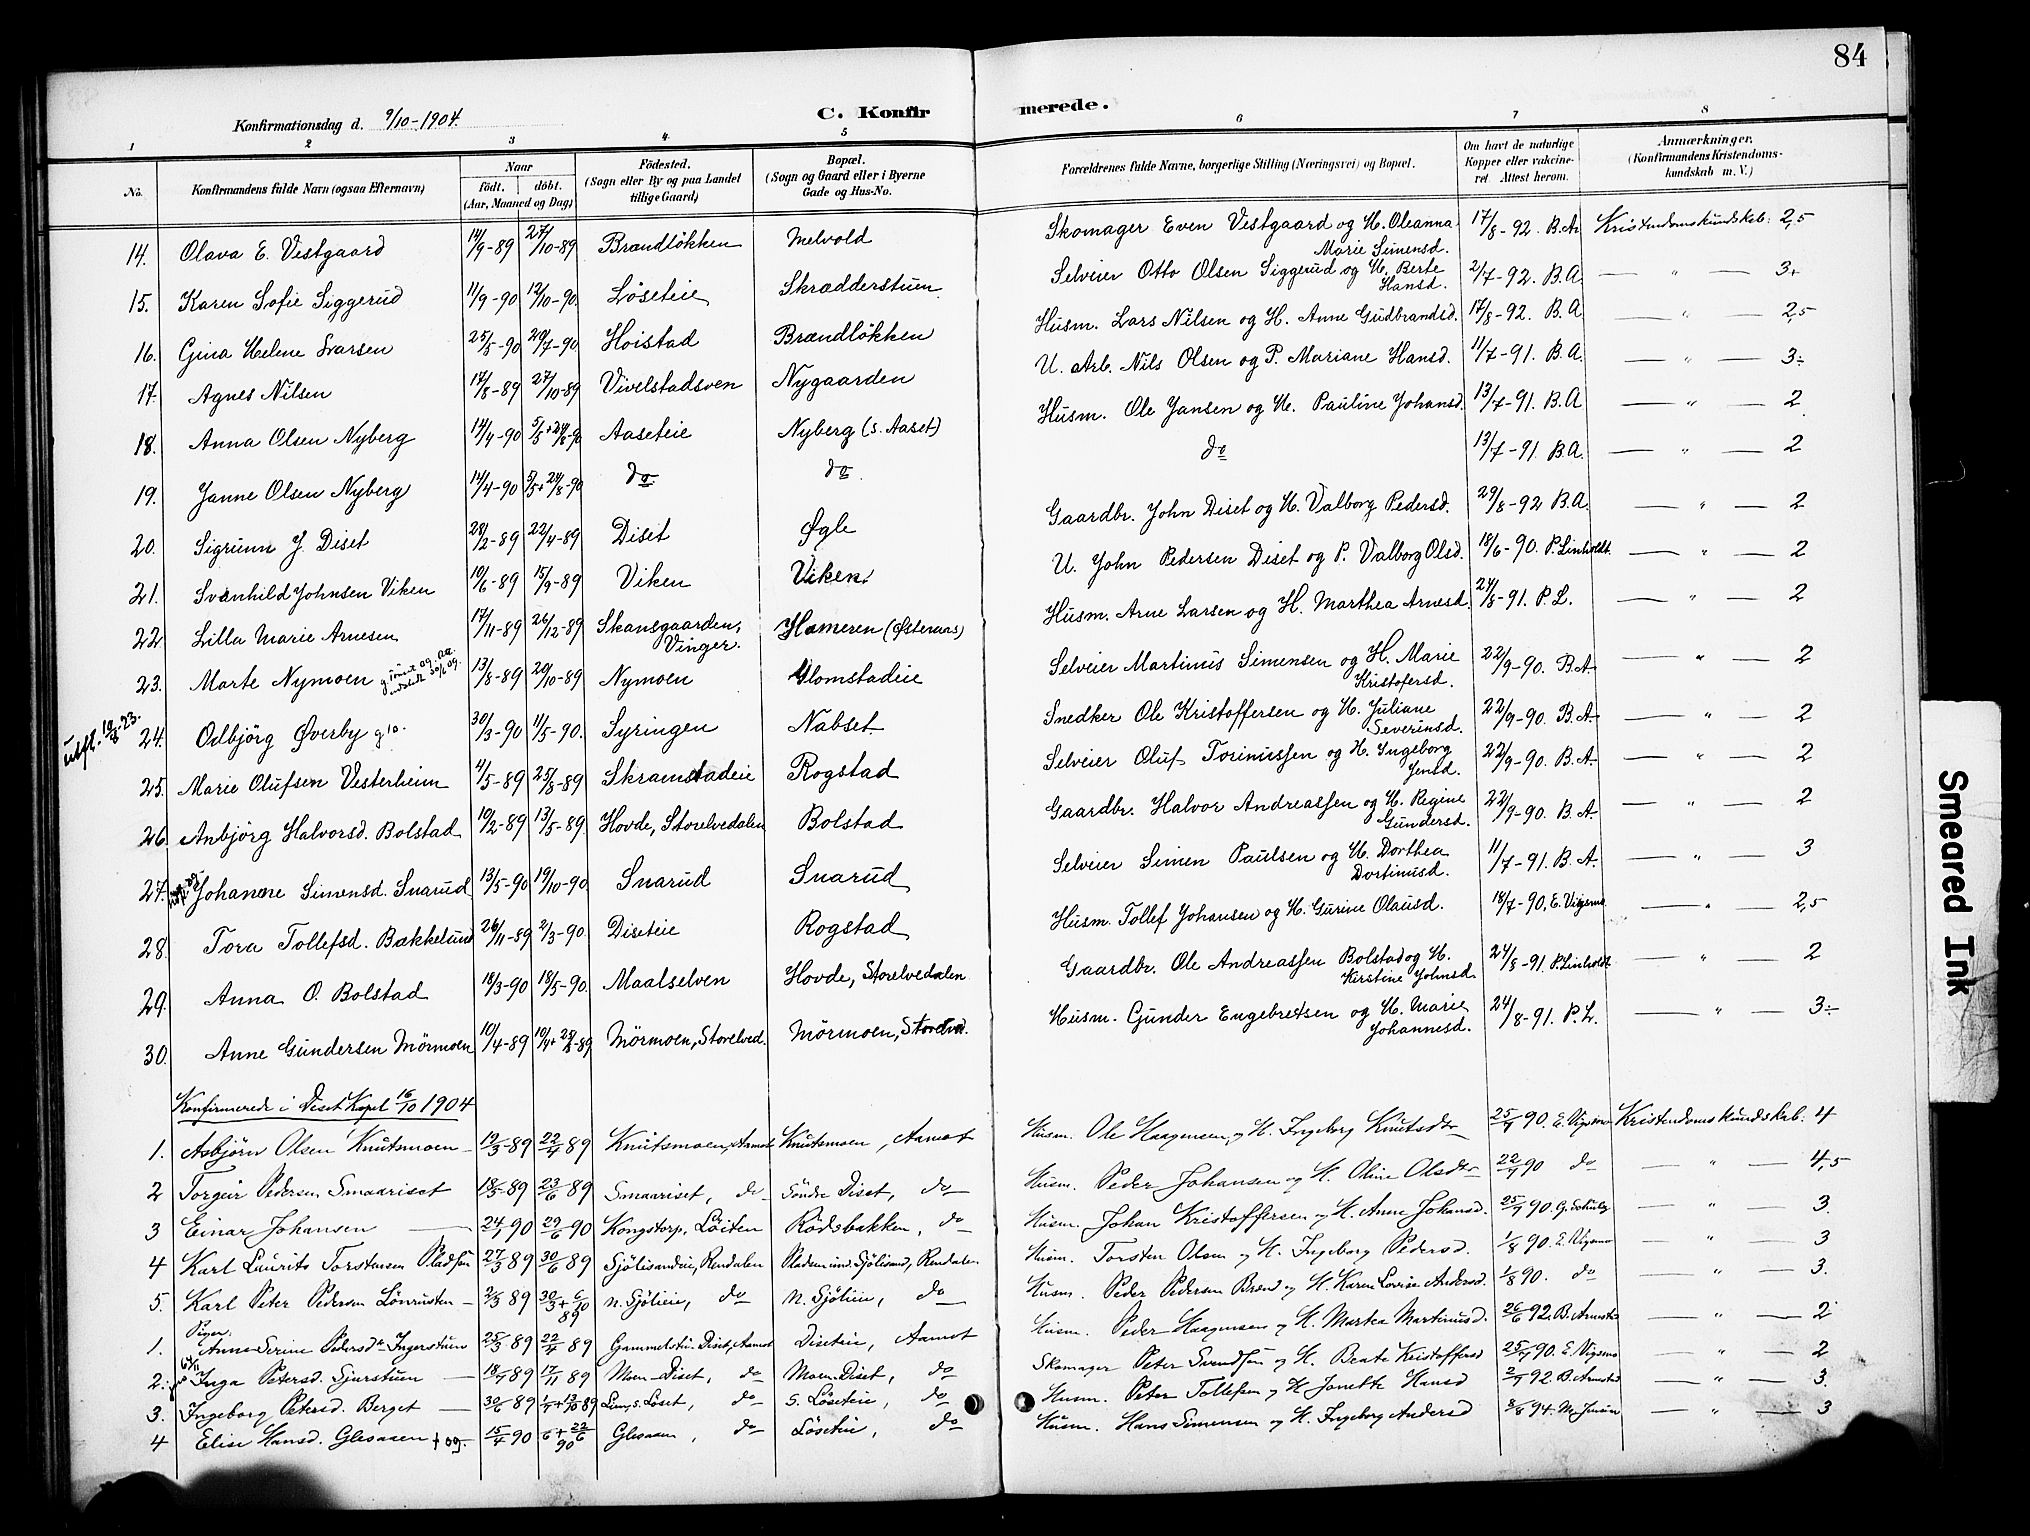 84
Konfirmationsdag d. 9/10-1904.
C. Konfirmerede.
1 2 3 4. 5 6 7 8
No. Konfirmandens fulde Navn (ogsaa Efternavn) Naar født. døbt. (Aar, Maaned og Dag) Födested. (Sogn eller By og paa Landet tillige Gaard) Bopæl. (Sogn og Gaard eller i Byerne Gade og Hus-No. Forældrenes fulde Navne, borgerlige Stilling (Næringsvei) og Bopæl. Om havt de naturlige Kopper eller vakcineret. Attest herom. Anmærkninger. (Konfirmandens Kristendomskundskab m. V.)
14. Olava E. Vestgaard 14/9-89 27/10-89 Brændløkken Melvold Skomager Even Vestgaard og H. Oleanna Marie Simensd. 17/8-92. B.A. Kristendomskundskab: 2,5
15. Karen Sofie Siggerud 11/9-90 12/10-90. Løseteie Skrædderstuen Selveier Otto Olsen Siggerud og H. Berte Hansd. 2/7-92. B.A. — " — 3+
16. Gina Helene Larsen 25/5-90 20/7-90. Hoistad Brændløkken Husm. Lars Nilsen og H. Anne Gudbrandsd. 17/8-92. B.A. — " — 2,5
17. Agnes Nilsen 17/8-89 27/10-89 Vivelstadsven Nygaarden U. Arb. Nils Olsen og P. Mariane Hansd. 11/7-91. B.A. — " — 3÷
18. Anna Olsen Nyberg 14/4-90 5/5+24/8-90 Aaseteie Nyberg (S. Aaset) Husm. Ole Jansen og H. Pauline Johansd. 13/7-91. B.A — " — 2.
19. Janne Olsen Nyberg 14/4-90 5/5+24/8-90 do do. do 13/7-91. B.A. — " — 2
20. Sigrunn J. Diset 28/2-89 22/4-89 Diset Øgle Gaardbr. John Diset og H. Valborg Pedersd. 29/8-92 B.A. — " — 2
21. Svanhild Johnsen Viken 10/6-89 15/9-89 Viken Viken. U. John Pedersen Diset og P. Valborg Olsd. 18/6-90. P. Linholdt. — " — 2
22. Lilla Marie Arnesen 17/11-89 26/12-89 Skansgaarden, Vinger. Hameren (Østeraas) Husm. Arne Larsen og H. Marthea Arnesd. 24/8-91. P.L. — " — 2
23. Marte Nymoen 13/8-89 20/10-89 Nymoen Glomstadeie Selveier Martinus Simensen og H. Marie Kristofersd. 22/9-90. B.A. — " — 2
utfl. 10/8-23. 24. Odbjörg Øverby g 10. 30/3-90 11/5-90. Syringen Nabset Snedker Ole Kristoffersen og H. Juliane Severinsd. 22/9-90. B.A. — " — 2
25. Marie Olufsen Vesterheim 4/5-89 25/8-89 Skramstadeie Rogstad Selveier Oluf Torinussen og H. Ingeborg Jensd. 22/9-90. B.A. — " — 2
26. Anbjörg Halvorsd. Bolstad 10/2-89 13/5-89. Hovde, Storelvedalen Bolstad Gaardbr. Halvor Andreassen og H. Regine Gundersd. 22/9-90. B.A. — " — 2
27. Johanne Simensd. Snarud 13/5-90 19/10-90. Snarud Snarud Selveier Simen Paulsen og H. Dorthea Dortinusd. 11/7-91. B.A. — " — 3
28. Tora Tollefsd. Bækkelund 26/11-89 2/3-90. Diseteie Rogstad Husm. Tollef Johansen og H. Gurine Olausd. 18/7-90, E. Vigsmo — " — 2,5
29. Anna O. Bolstad 18/3-90 18/5-90. Maalselven Hovde, Storelvedalen Gaardbr. Ole Andreassen Bolstad og H. Kirstine Johnsd. 24/8-91. P. Linholdt — " — 2
30. Anne Gundersen Mörmoen 10/4-89 Mörmoen, Storelved. Mörmoen, Storelvd. Husm. Gunder Engebretsen og H. Marie Johannesd. 24/8-91. P.L. — " — 3÷
Konfirmerede i Diset Kapel 16/10 1904
1. Asbjörn Olsen Knutsmoen 12/3-89 22/4 89 Knutsmoen, Aamot Knutsmoen, Aamot Husm. Ole Haagensen og H. Ingeborg Knutsdtr 25/7 90. E. Vigsmo Kristendomskundskab. 4
2 Torgeir Pedersen Smaariset 18/5-89 23/6 89 Smaariset, do Söndre Diset, do Husm. Peder Johansen og H. Oline Olsdtr 22/7 90 do — " — 4,5
3 Einar Johansen 24/4 90 29/6 90 Kongstorp, Löiten Rödsbakken, do Husm. Johan Kristoffersen og H. Anne Johansd. 25/7 90. — " — 3.
4 Karl Laurits Torstensen Pladsen 27/3 89 30/6 89 Sjölisandeie, Rendalen Sjölisand, Rendalen Husm. Torsten Olsen og H. Ingeborg Pedersd. 1/8 90. E. Vigsmo — " — 3
5. Karl Peter Pedersen Lönrusten 2/3 89 n. Sjölieie, do N. Sjölieie, do Husm. Peder Pedersen Brend og H. Karen Lovise Andersd. 1/8 90. do — " — 3.
Piger.
1. Anne Serine Pedersdtr Ingerstuen 25/3 89 22/4 89 Gammelstu. Diset, Aamot Diseteie, Aamot Husm. Peder Haagensen og H. Martea Martinusd. 26/6 92. B. Arnesta — " — 2
2. Inga Petersd. Sjurstuen 18/7 89 17/11 89 Moen-Diset, do Moen-Diset, do Skomager Peter Svendsen og H. Beate Kristoffersd 25/7 90. E. Vigsmo — " — 2
3. Ingeborg Petersd. Berget 30/6 89 S. Löset, do S. Löseteie, do Husm. Peter Tollefsen og H. Jonette Hansd 2/7 92. — " — 3.
4 Elise Hansd. Glesaaen + 09. 15/4 90 Glesaaen, do Löseteie, do Husm. Hans Simensen og H. Ingeborg Andersd 3/8 94. — " — 3
Smeared Ink